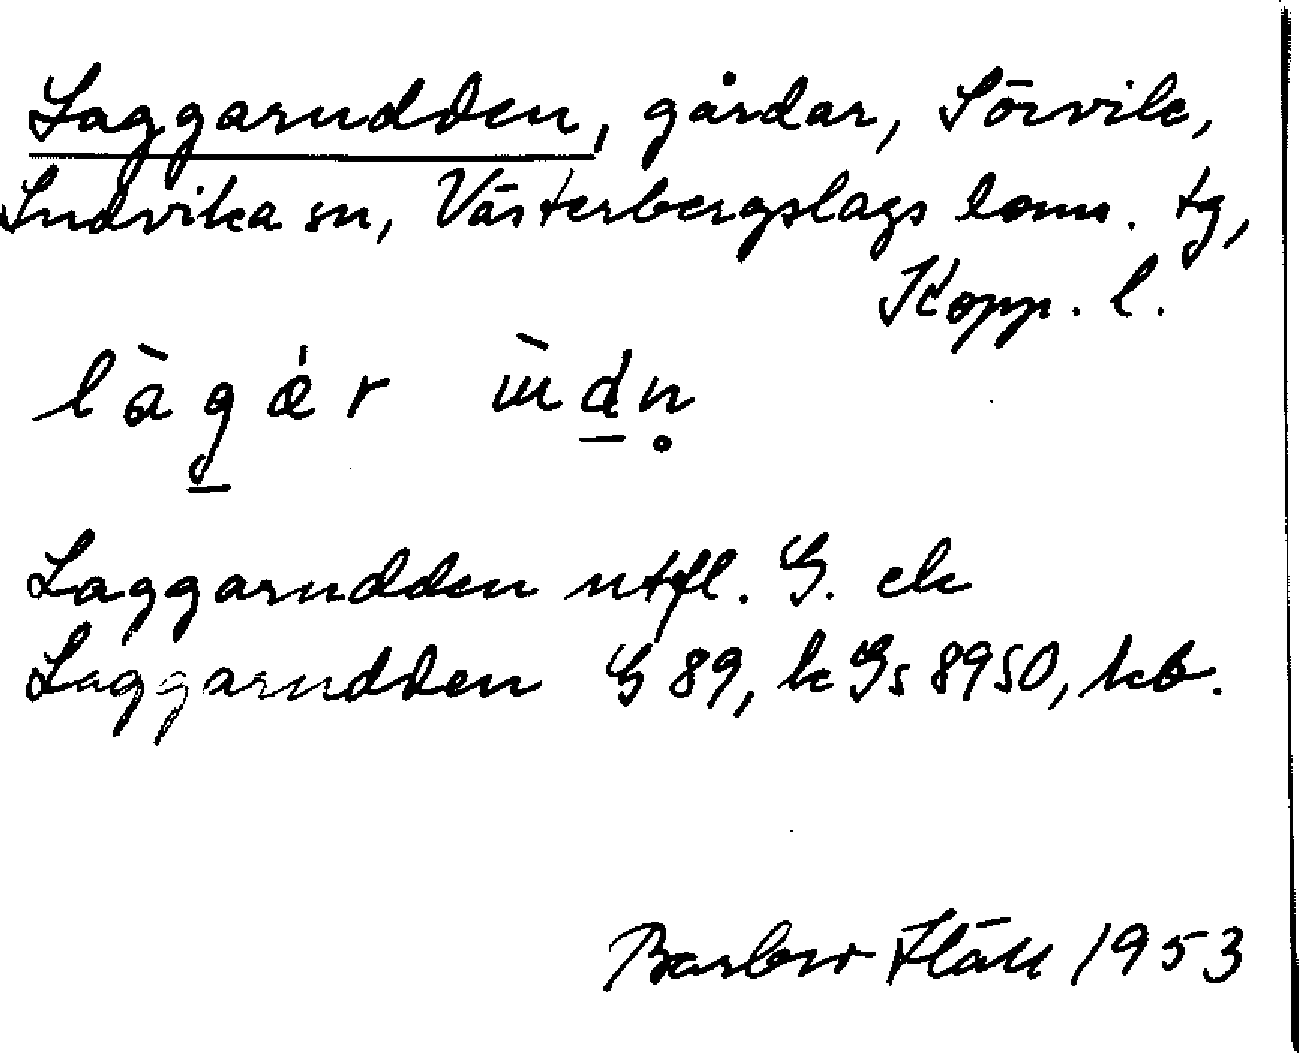 Laggarudden, gårdar, Sörvik,
Ludvika sn, Västerbergslags doms. tg,
Kopp. l.
Laggarudden utfl. G. ek
Laggarudden G 89, k Gs 8950, kb.
1953